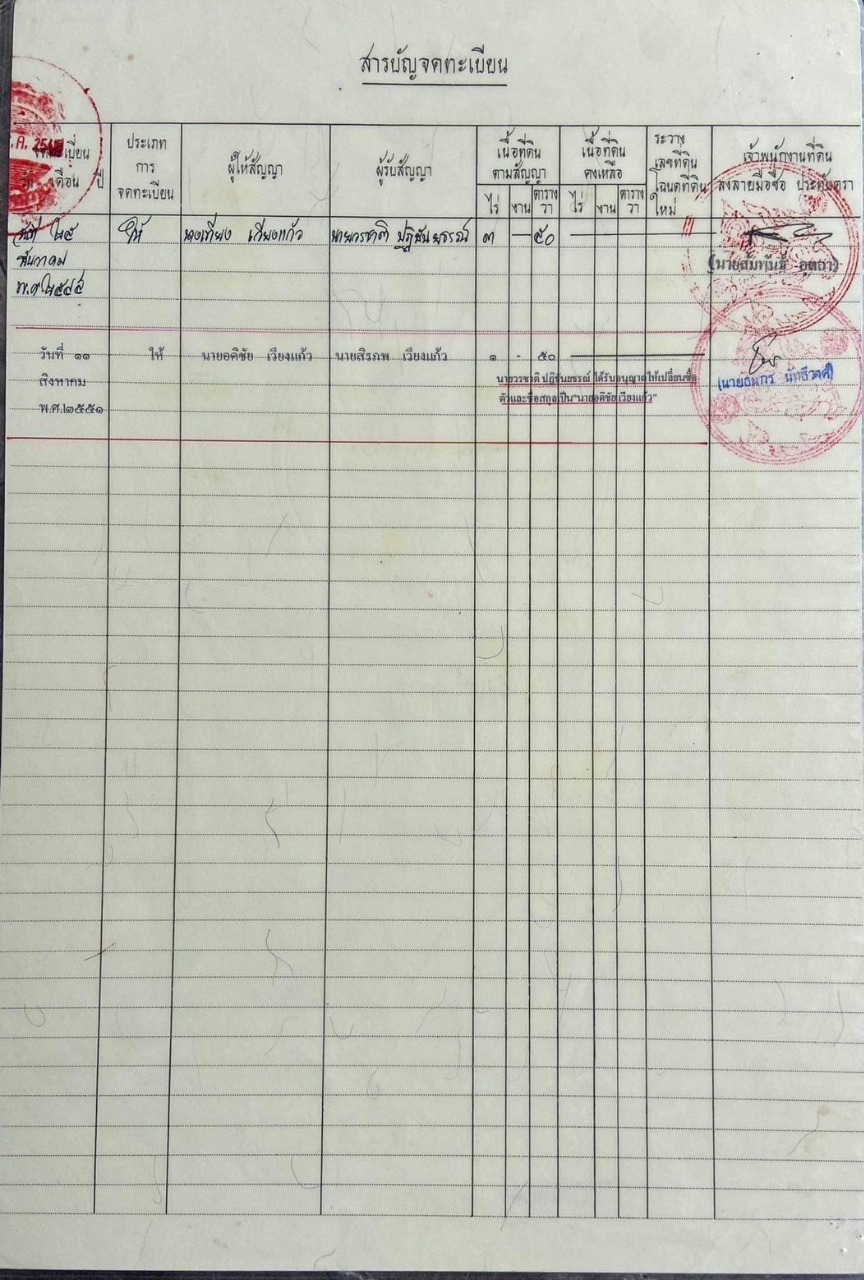 สารบัญจดทะเบียน
จดทะเบียน
วัน เดือน ปี
ประเภท
การ
จดทะเบียน
ผู้ให้สัญญา
ผู้รับสัญญา
เนื้อที่ดิน
ตามสัญญา
ไร่ งาน ตาราง
วา
เนื้อที่ดิน
คงเหลือ
ไร่ งาน ตาราง
วา
ระวาง
เลขที่ดิน
โฉนดที่ดิน
ใหม่
เจ้าพนักงานที่ดิน
ลงลายมือชื่อ ประทับตรา
วันที่ ๒๕ ให้ นางเที่ยง เวียงแก้ว นายวรชาติ ปฏิสันยธรณ์ ๑ — ๕๐
ธันวาคม
พ.ศ.๒๕๔๔
(นายสัมพันธ์
วันที่ ๑๑ ให้ นายอติชัย เวียงแก้ว นายสิรภพ เวียงแก้ว ๑ - ๕๐
สิงหาคม
พ.ศ.๒๕๕๑
นายวรชาติ ปฏิสันยธรณ์ ได้รับอนุญาตให้เปลี่ยนชื่อ
ตัวและชื่อสกุลเป็น"นายอติชัย เวียงแก้ว"
(นายธนกร